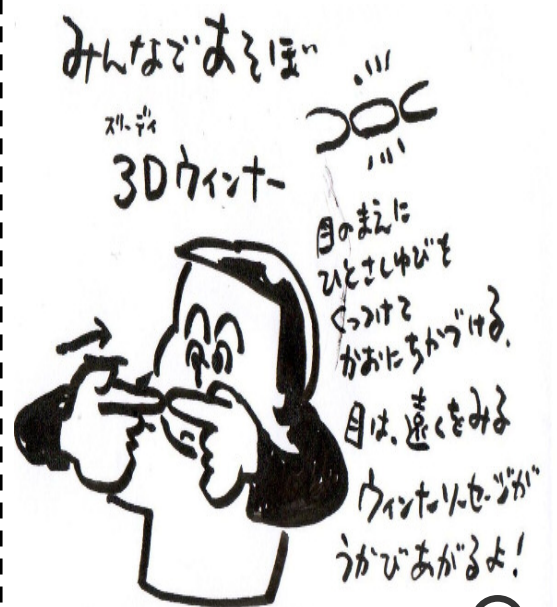 みんなであそぼ
スリーディ
3Dウィンナー
目のまえに
ひとさしゆびを
くっつけて
かおにちかづける。
目は、遠くをみる
ウィンナーソーセージが
うかびあがるよ!